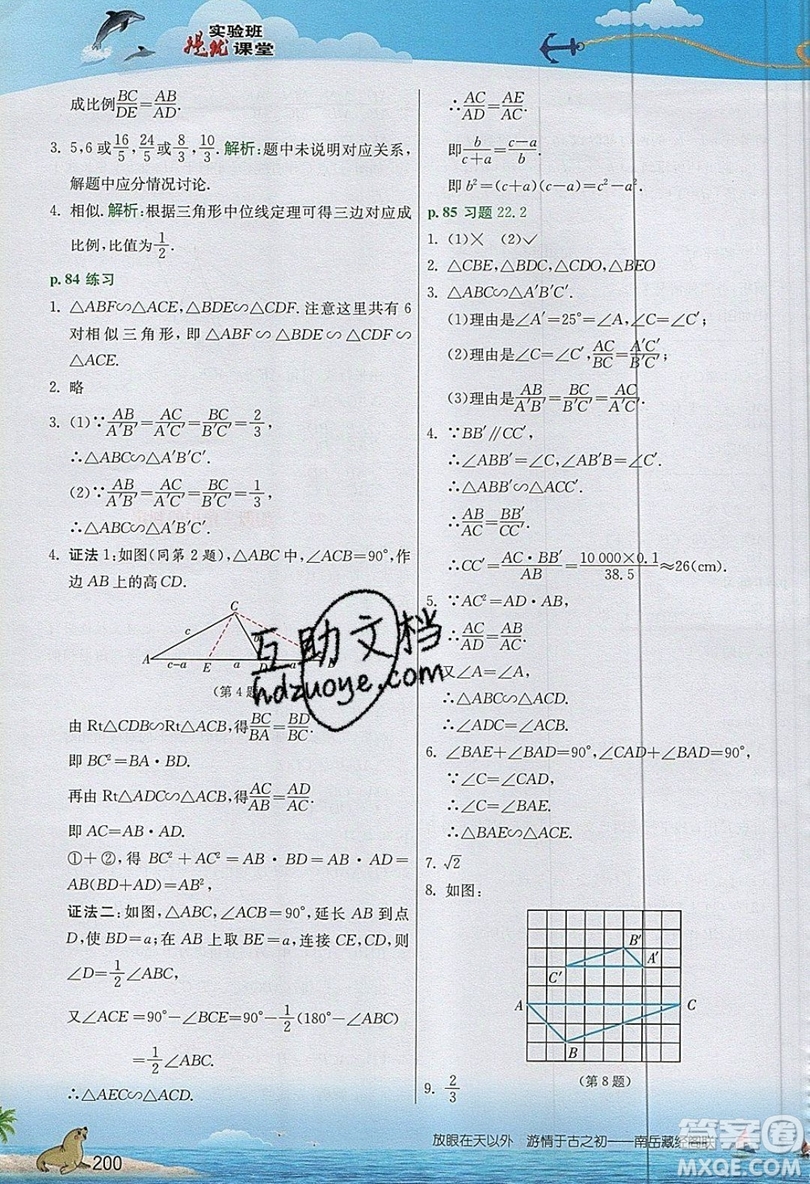 实验班
提优课堂
成比例BC/DE=AB/AD.
3. 5,6或16/5,24/5或8/3,10/3. 解析:题中未说明对应关系,
解题中应分情况讨论.
4. 相似. 解析:根据三角形中位线定理可得三边对应成
比例,比值为1/2.
p. 84 练习
1. △ABF∽△ACE,△BDE∽△CDF. 注意这里共有 6
对相似三角形,即 △ABF ∽ △BDE ∽ △CDF ∽
△ACE.
2. 略
3. (1)∵AB/A′B′=AC/A′C′=BC/B′C′=2/3,
∴△ABC∽△A′B′C′.
(2)∵AB/A′B′=AC/A′C′=BC/B′C′=1/3,
∴△ABC∽△A′B′C′.
4. 证法 1:如图(同第 2 题),△ABC 中,∠ACB=90°,作
边 AB 上的高 CD.
C
c
A
c-a
E
a
(第 4 题)
由 Rt△CDB∽Rt△ACB,得BC/BA=BD/BC.
即 BC²=BA·BD.
再由 Rt△ADC∽△ACB,得AC/AB=AD/AC.
即 AC=AB·AD.
①+②,得 BC²+AC²=AB·BD+AB·AD=AB²,
证法二:如图,△ABC,∠ACB=90°,延长 AB 到点
D,使 BD=a;在 AB 上取 BE=a,连接 CE,CD,则
∠D=1/2∠ABC,
又∠ACE=90°-∠BCE=90°-1/2(180°-∠ABC)
=1/2∠ABC.
∴△AEC∽△ACD.
∴AC/AD=AE/AC.
即b/(c+a)=(c-a)/b.
即 b²=(c+a)(c-a)=c²-a².
p. 85 习题 22. 2
1. (1)× (2)✓
2. △CBE,△BDC,△CDO,△BEO
3. △ABC∽△A′B′C′.
(1)理由是∠A′=25°=∠A,∠C=∠C′;
(2)理由是∠C=∠C′,AC/BC=A′C′/B′C′;
(3)理由是AB/A′B′=BC/B′C′=AC/A′C′.
4. ∵BB′∥CC′,
∴∠ABB′=∠C,∠AB′B=∠C′.
∴△ABB′∽△ACC′.
∴AB/AC=BB′/CC′.
∴CC′=AC·BB′/AB=10 000×0.1/38.5≈26(cm).
5. ∵AC²=AD·AB,
∴AC/AD=AB/AC.
又∠A=∠A,
∴△ABC∽△ACD.
∴∠ADC=∠ACB.
6. ∠BAE+∠BAD=90°,∠CAD+∠BAD=90°,
∵∠C=∠C,
∴∠C=∠BAE.
∴△BAE∽△ACE.
7. √2
8. 如图:
B′
C′
A′
A
C
B
(第 8 题)
9. 2/3
互助文档
hdzuoye.com
放眼在天以外 游情于古之初——南岳藏经阁联
200
答案圈
MXQE.COM